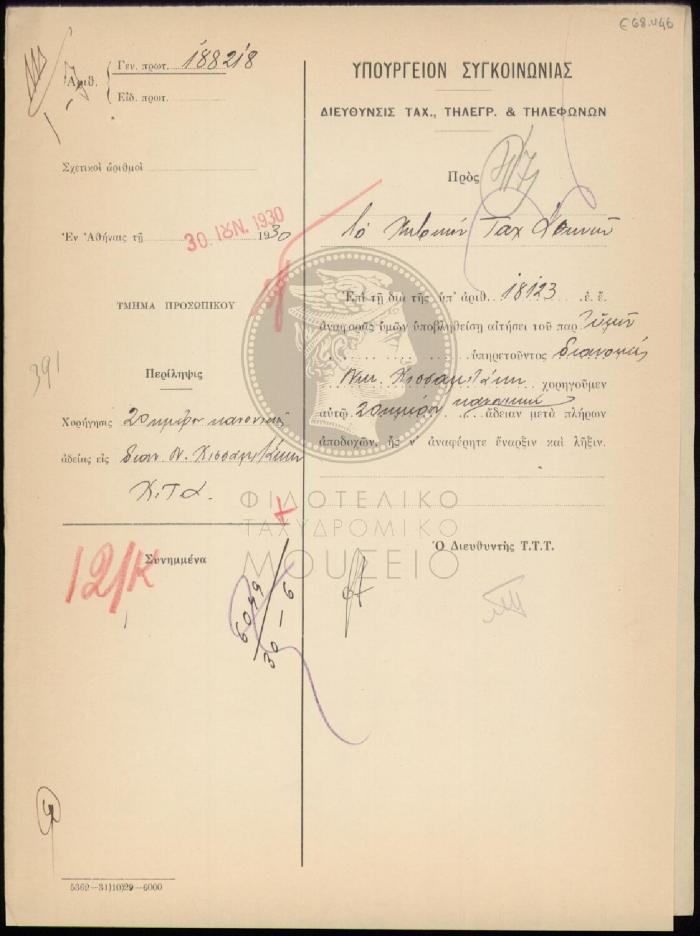 Ε68.446
Ἀριθ.
Γεν. πρωτ. 18828
Εἰδ. πρωτ.
1-7
Σχετικοὶ ἀριθμοὶ
Ἐν Ἀθήναις τῇ 1930
30. ΙΟΥΝ. 1930
ΤΜΗΜΑ ΠΡΟΣΩΠΙΚΟΥ
391
Περίληψις
Χορήγησις 20ημέρου κανονικῆς
ἀδείας εἰς διαν. Ν.
Συνημμένα
12/Κ
6049
30-6
5362—31)10)29—6000
ΥΠΟΥΡΓΕΙΟΝ ΣΥΓΚΟΙΝΩΝΙΑΣ
ΔΙΕΥΘΥΝΣΙΣ ΤΑΧ., ΤΗΛΕΓΡ. & ΤΗΛΕΦΩΝΩΝ
Πρὸς
Τὸ Κεντρικὸν Ταχ Ἀθηνῶν
Ἐπὶ τῇ διὰ τῆς ὑπ' ἀριθ. 18123 ἐ. ἔ.
ἀναφορᾶς ὑμῶν ὑποβληθείσῃ αἰτήσει τοῦ παρ' ὑμῖν
ὑπηρετοῦντος διανομέως
Νικ. χορηγοῦμεν
αὐτῷ 20ημερον κανονικὴν ἄδειαν μετὰ πλήρων
ἀποδοχῶν, ἧς ν' ἀναφέρητε ἔναρξιν καὶ λῆξιν.
Ὁ Διευθυντὴς Τ.Τ.Τ.
ΦΙΛΟΤΕΛΙΚΟ
ΤΑΧΥΔΡΟΜΙΚΟ
ΜΟΥΣΕΙΟ